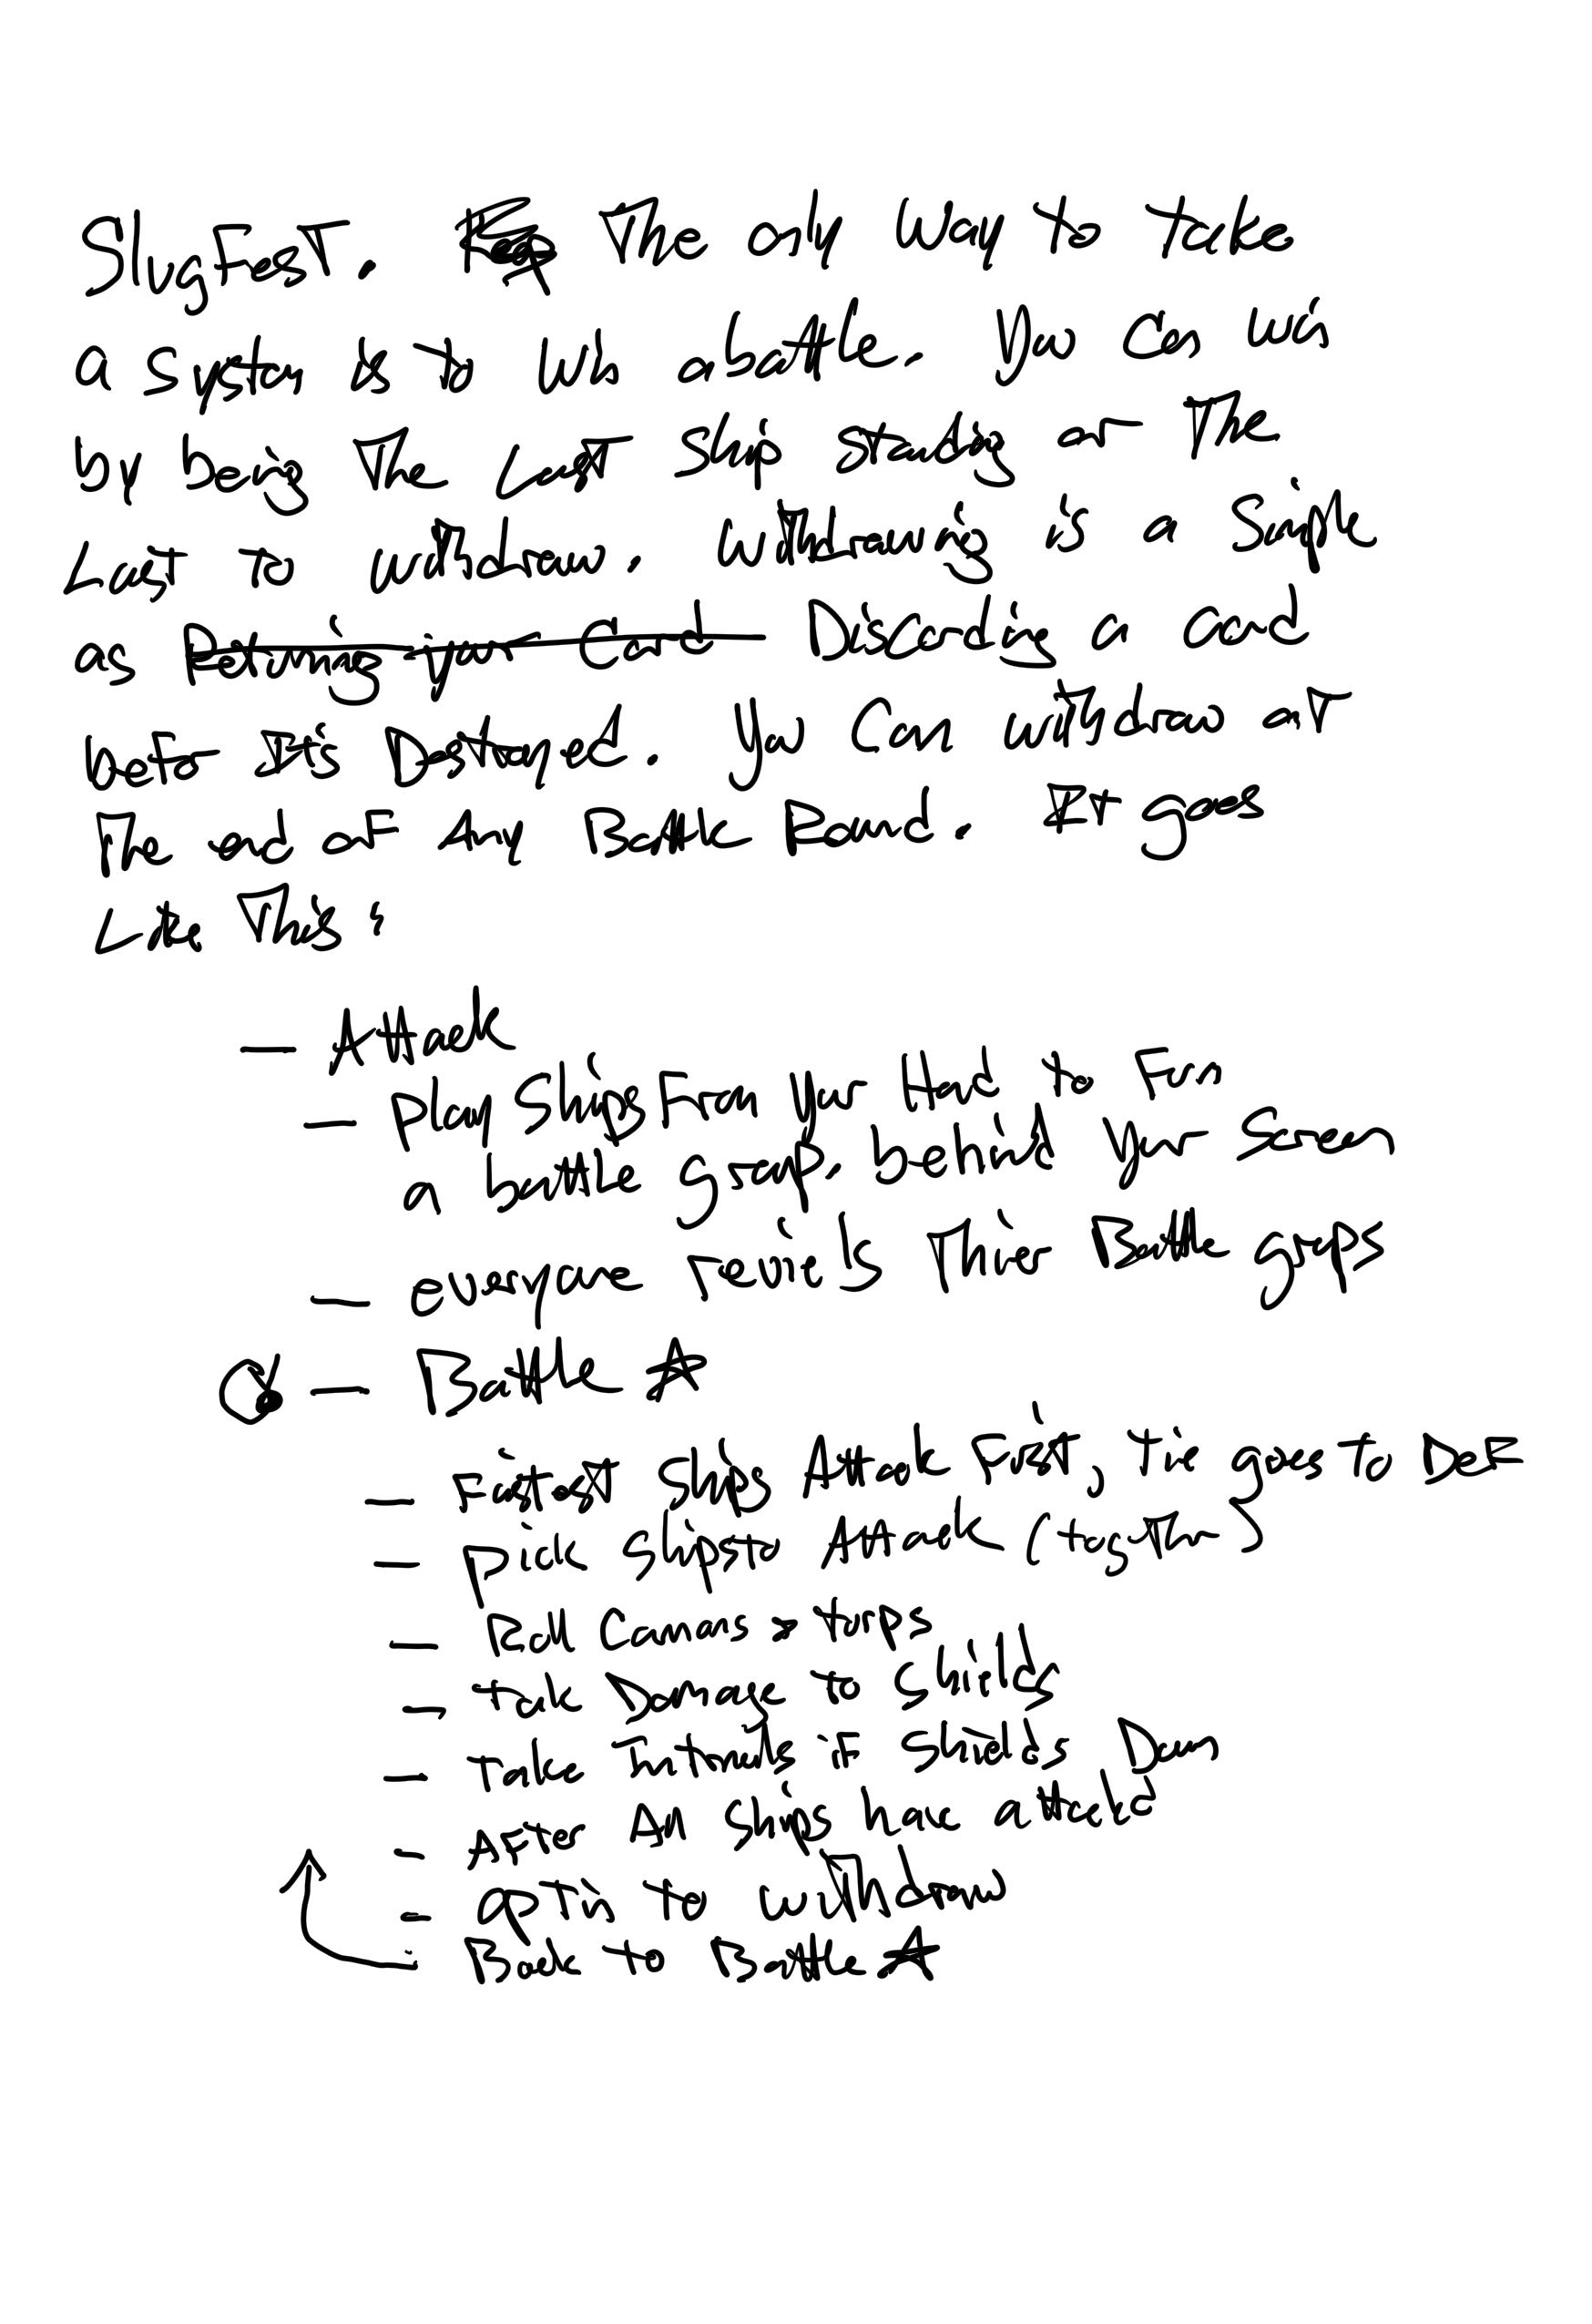 SlugFest. The only way to take
a system is to win a battle. You can win
by being The Last Ship standing or The
Last to withdraw. Withdrawing is a simple
as Returning your Card Discarding a card
before It's Destroyed. You can withdraw at
The end of Any Battle Round. It goes
Like This:
- Attack
- Play Ships From your Hand to Form
a battle group. behind your screen
- everyone reviels Thier Battle groups
- Battle ☆
- Fastest Ships Attack First, tie goes To DeF
- pick ship to Attack (together)
- Roll Cannons & torps
- take Damage to shields
- Take Internals if shields Down
- After All ships have attacked
- option to withdraw
- Back to Battle ☆